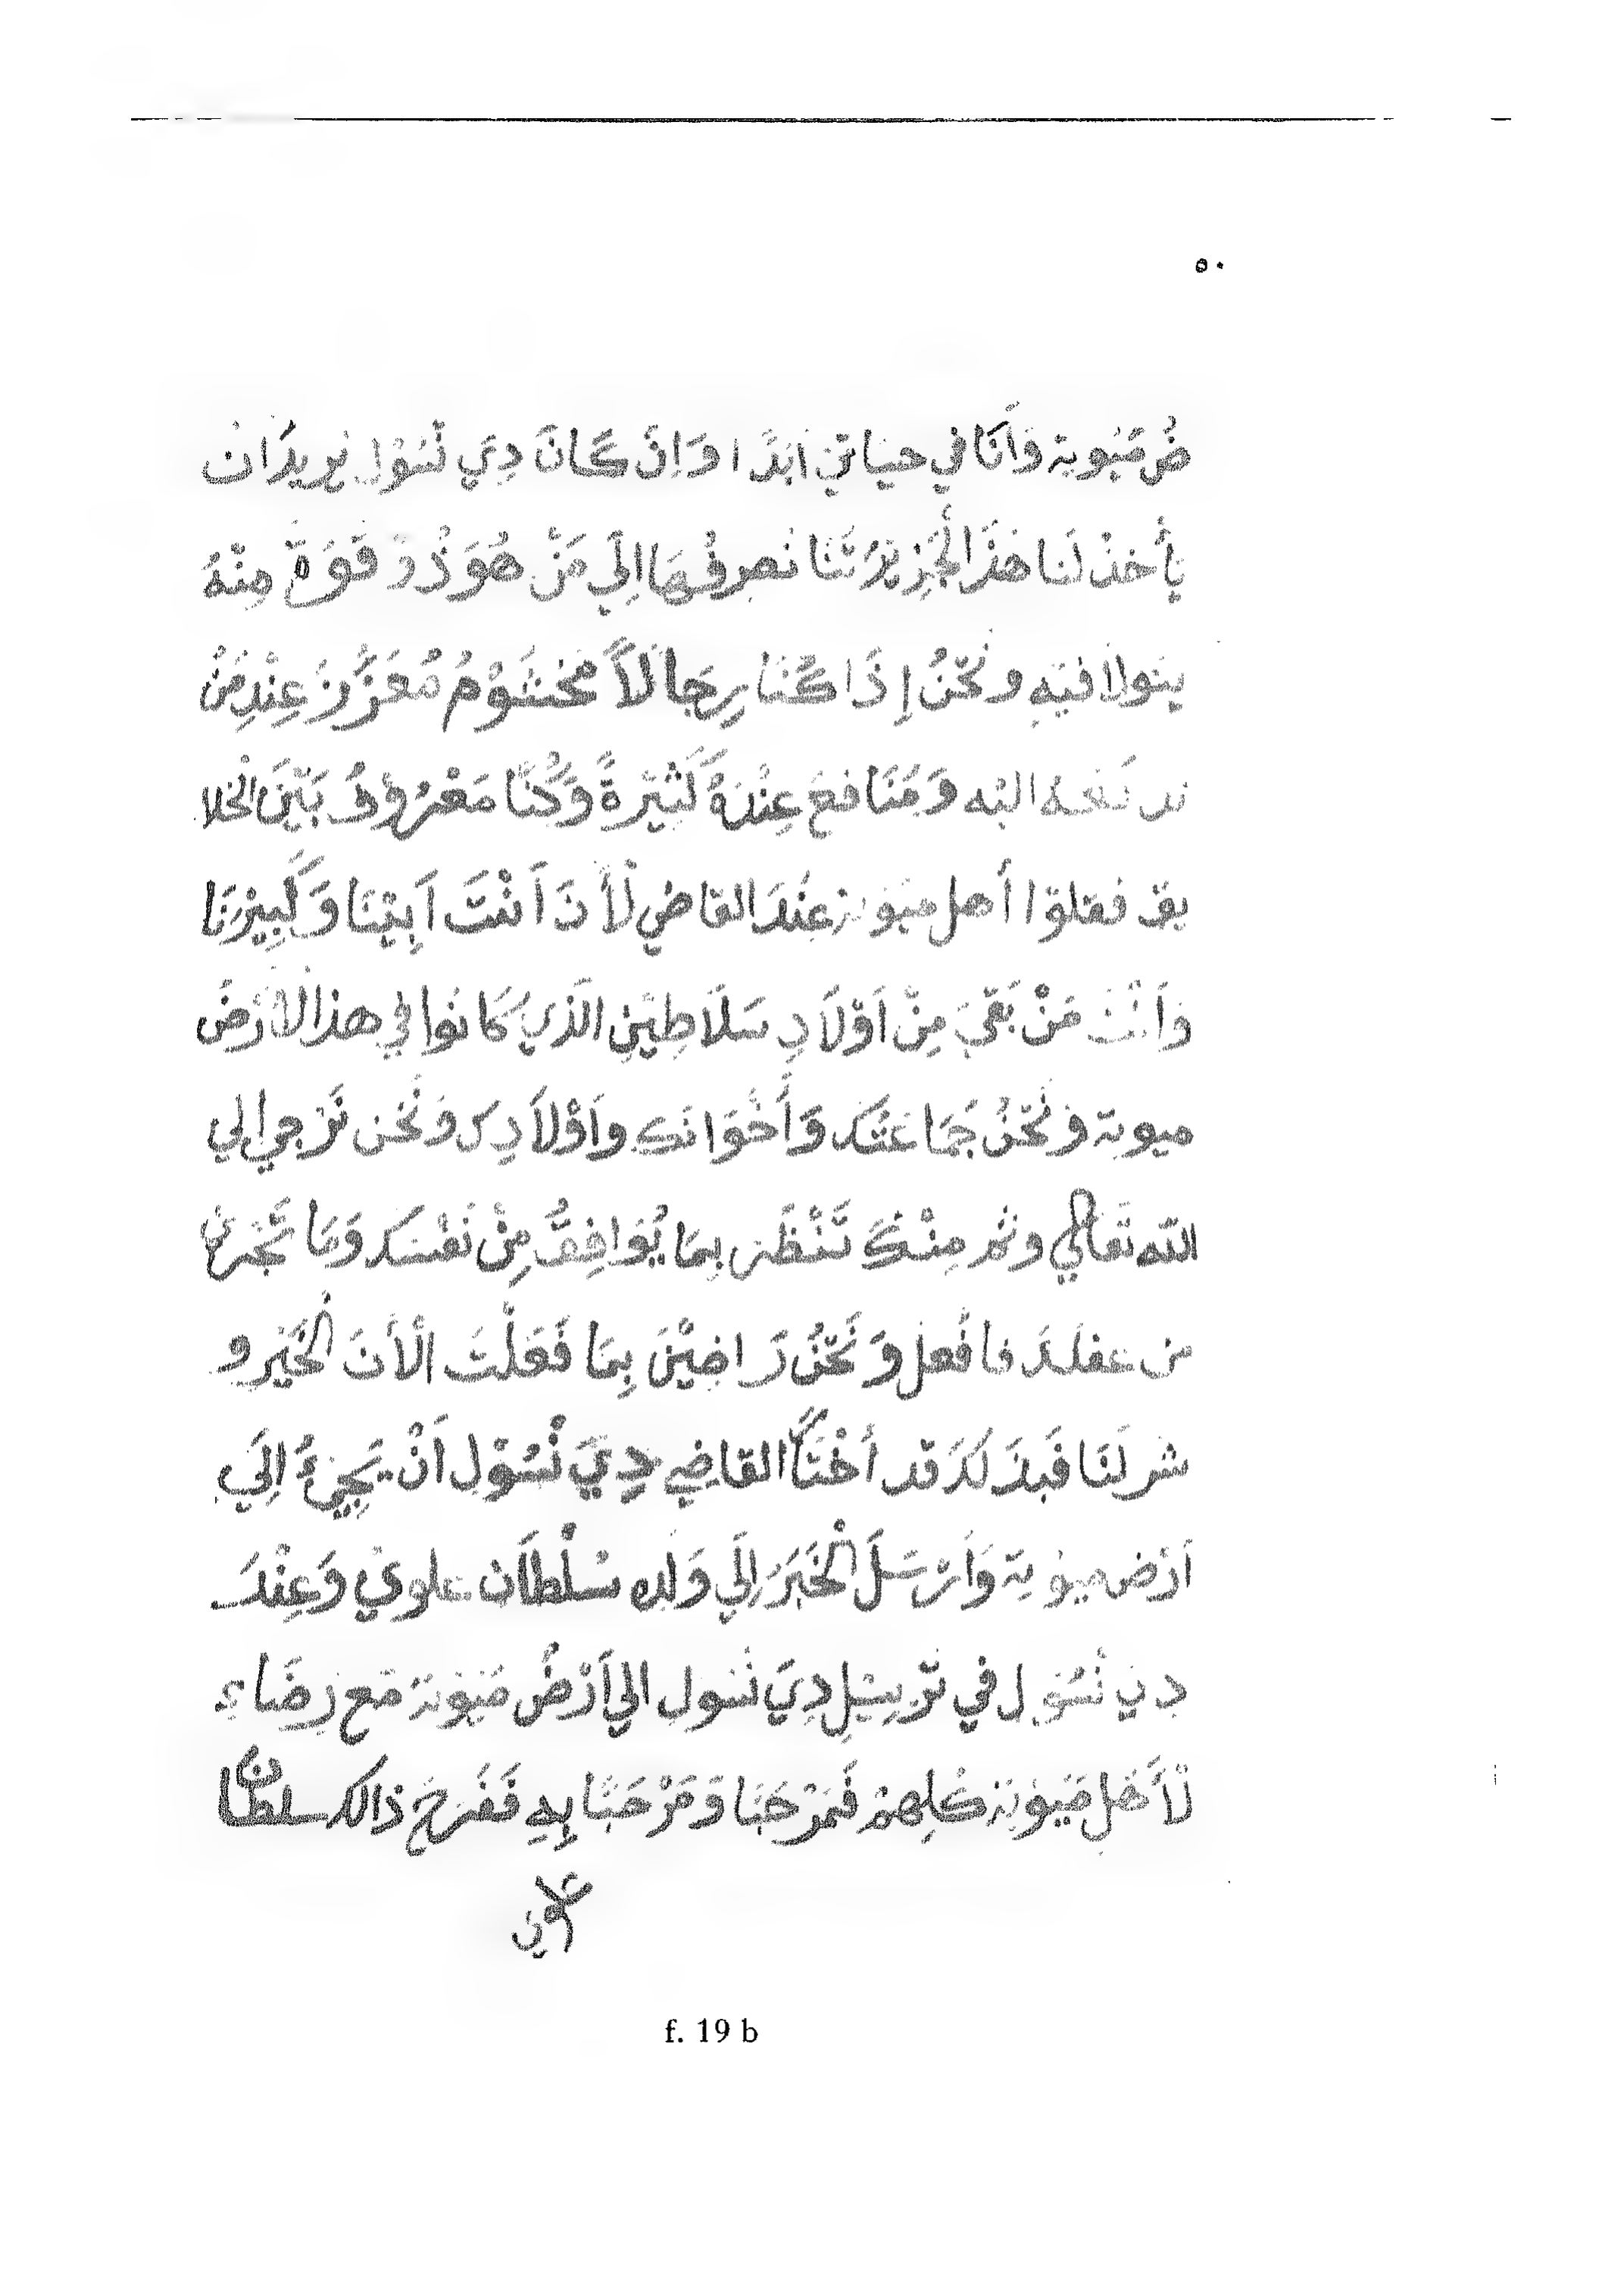 ٥٠
ضُ مَيُوِية وَأَنَا في حياتي ابَدًا وَاِنْ كَانَ دِيَ نْسُوْلِ يُرِيدُ ان
يَأْخذْ لَنا هَذَا الْجَزِيْرَتَنَا نصرفُهَا اِلَي مَنْ هُوَ ذُوْ قَوَةٍ مِنْهُ
يتولا فيْهِ و نَحْنُ إذَا كُنَا رِجَالاً مُحْتشَوْمُ مُعَزَّزْ عِنْدِ مَنْ
ند فعه اليْه وَ مَنَا فِعَ عِنْدَهُ كَثِيْرَةً وَ كُنَّا مَعْرُوْفُ بَيْنَ الْخلا
يق فقلوْا أهل ميوية عِنْدَ القاضِي لْأَنَ اَنْتَ اَبِيْنَا وَ كَبِيْرْنَا
وَاَنْتَ مَنْ بَقِيَ مِنْ اَوْلَادِ سَلَاطِيْنِ الَّذِي كَانُوا فِي هذا الاَرْضَ
ميوية وَ نَحْنُ جَمَاعَتَك وَ أَخْوَانَك واَوْلاَدِك وَنَحْن نَرْجي اِلي
اللّه تَعَالَي وثم مِنْكَ تَنْظُر بِمَا يُوَافِقُ مِنْ نَفْسَك وَمَا تَجْرِيْ
من عقلك فا فْعل وَ نَحْنُ رَاضِيْنَ بِمَا فَعَلْتَ الْأَنَ الْخَيْرِ و
شر لَنَا فَبِذَلَكَ قد أخْتَا القاضِي دِيَ نْسُوْلِ اَنْ يَجِيْءُ اِلَي
اَرْض ميويَة وَاَرْسَلَ الْخَبَرَ اِلَي وَلَدِهِ سُلْطَان علوي وَعِنْدَ
دِيَ نْسُوْل في تَرْسِيْلِ دِيَ نْسُول الي اَرْضُ مَيُوِية مَع رِضَاءِ
لْأَهْلِ مَيُوِية كُلِهِمْ فَمَرْحَبَا وَ مَرْحَبًا بِهِ فَفَرِحَ ذالك سلطان
علوي
f. 19 b